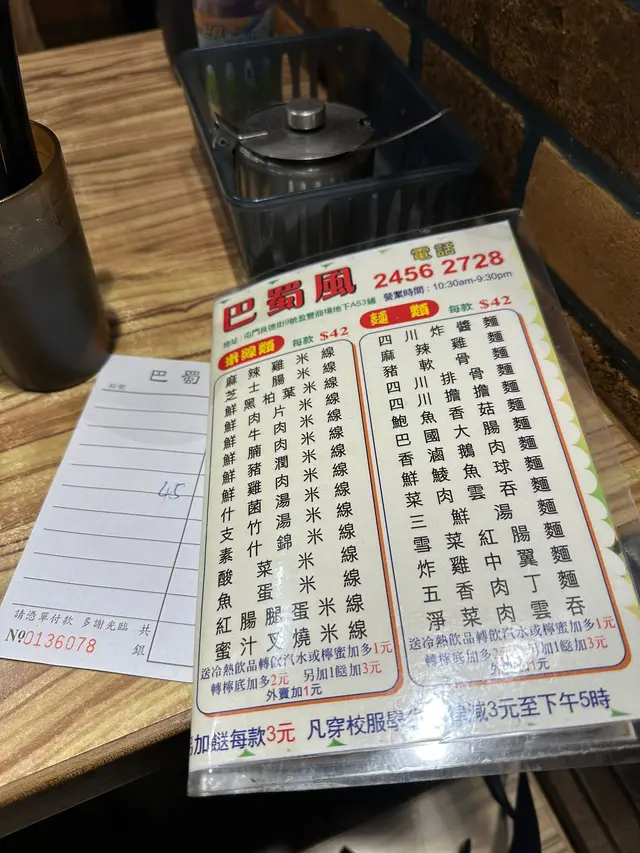 巴蜀風
電話
2456 2728
地址：屯門良德街9號盈豐商場地下A53舖
營業時間：10:30am-9:30pm
米線類 每款 $42
麻辣雞米線
芝士腸米線
鮮黑柏葉米線
鮮肉片米線
鮮牛肉米線
鮮腩肉米線
鮮豬潤米線
鮮雞肉米線
什菌湯米線
支竹湯米線
素什錦米線
酸菜米線
魚蛋米線
紅腸腿蛋米線
蜜汁叉燒米線
送冷熱飲品轉飲汽水或檸蜜加多1元
轉檸底加多2元 另加1餸加3元
外賣加1元
麵.類 每款 $42
四川炸醬麵
麻辣雞麵
豬軟骨麵
四川排骨麵
四川擔擔麵
鮑魚香菇麵
巴國大腸麵
香滷鵝肉麵
鮮鯪魚球麵
菜肉雲吞麵
三鮮湯麵
雪菜紅腸麵
炸雞中翼麵
五香肉丁麵
淨菜肉雲吞
送冷熱飲品轉飲汽水或檸蜜加多1元
轉檸底加多2元 另加1餸加3元
加餸每款3元 凡穿校服學 減3元至下午5時
巴蜀
45
請憑單付款 多謝光臨
共
銀
№0136078